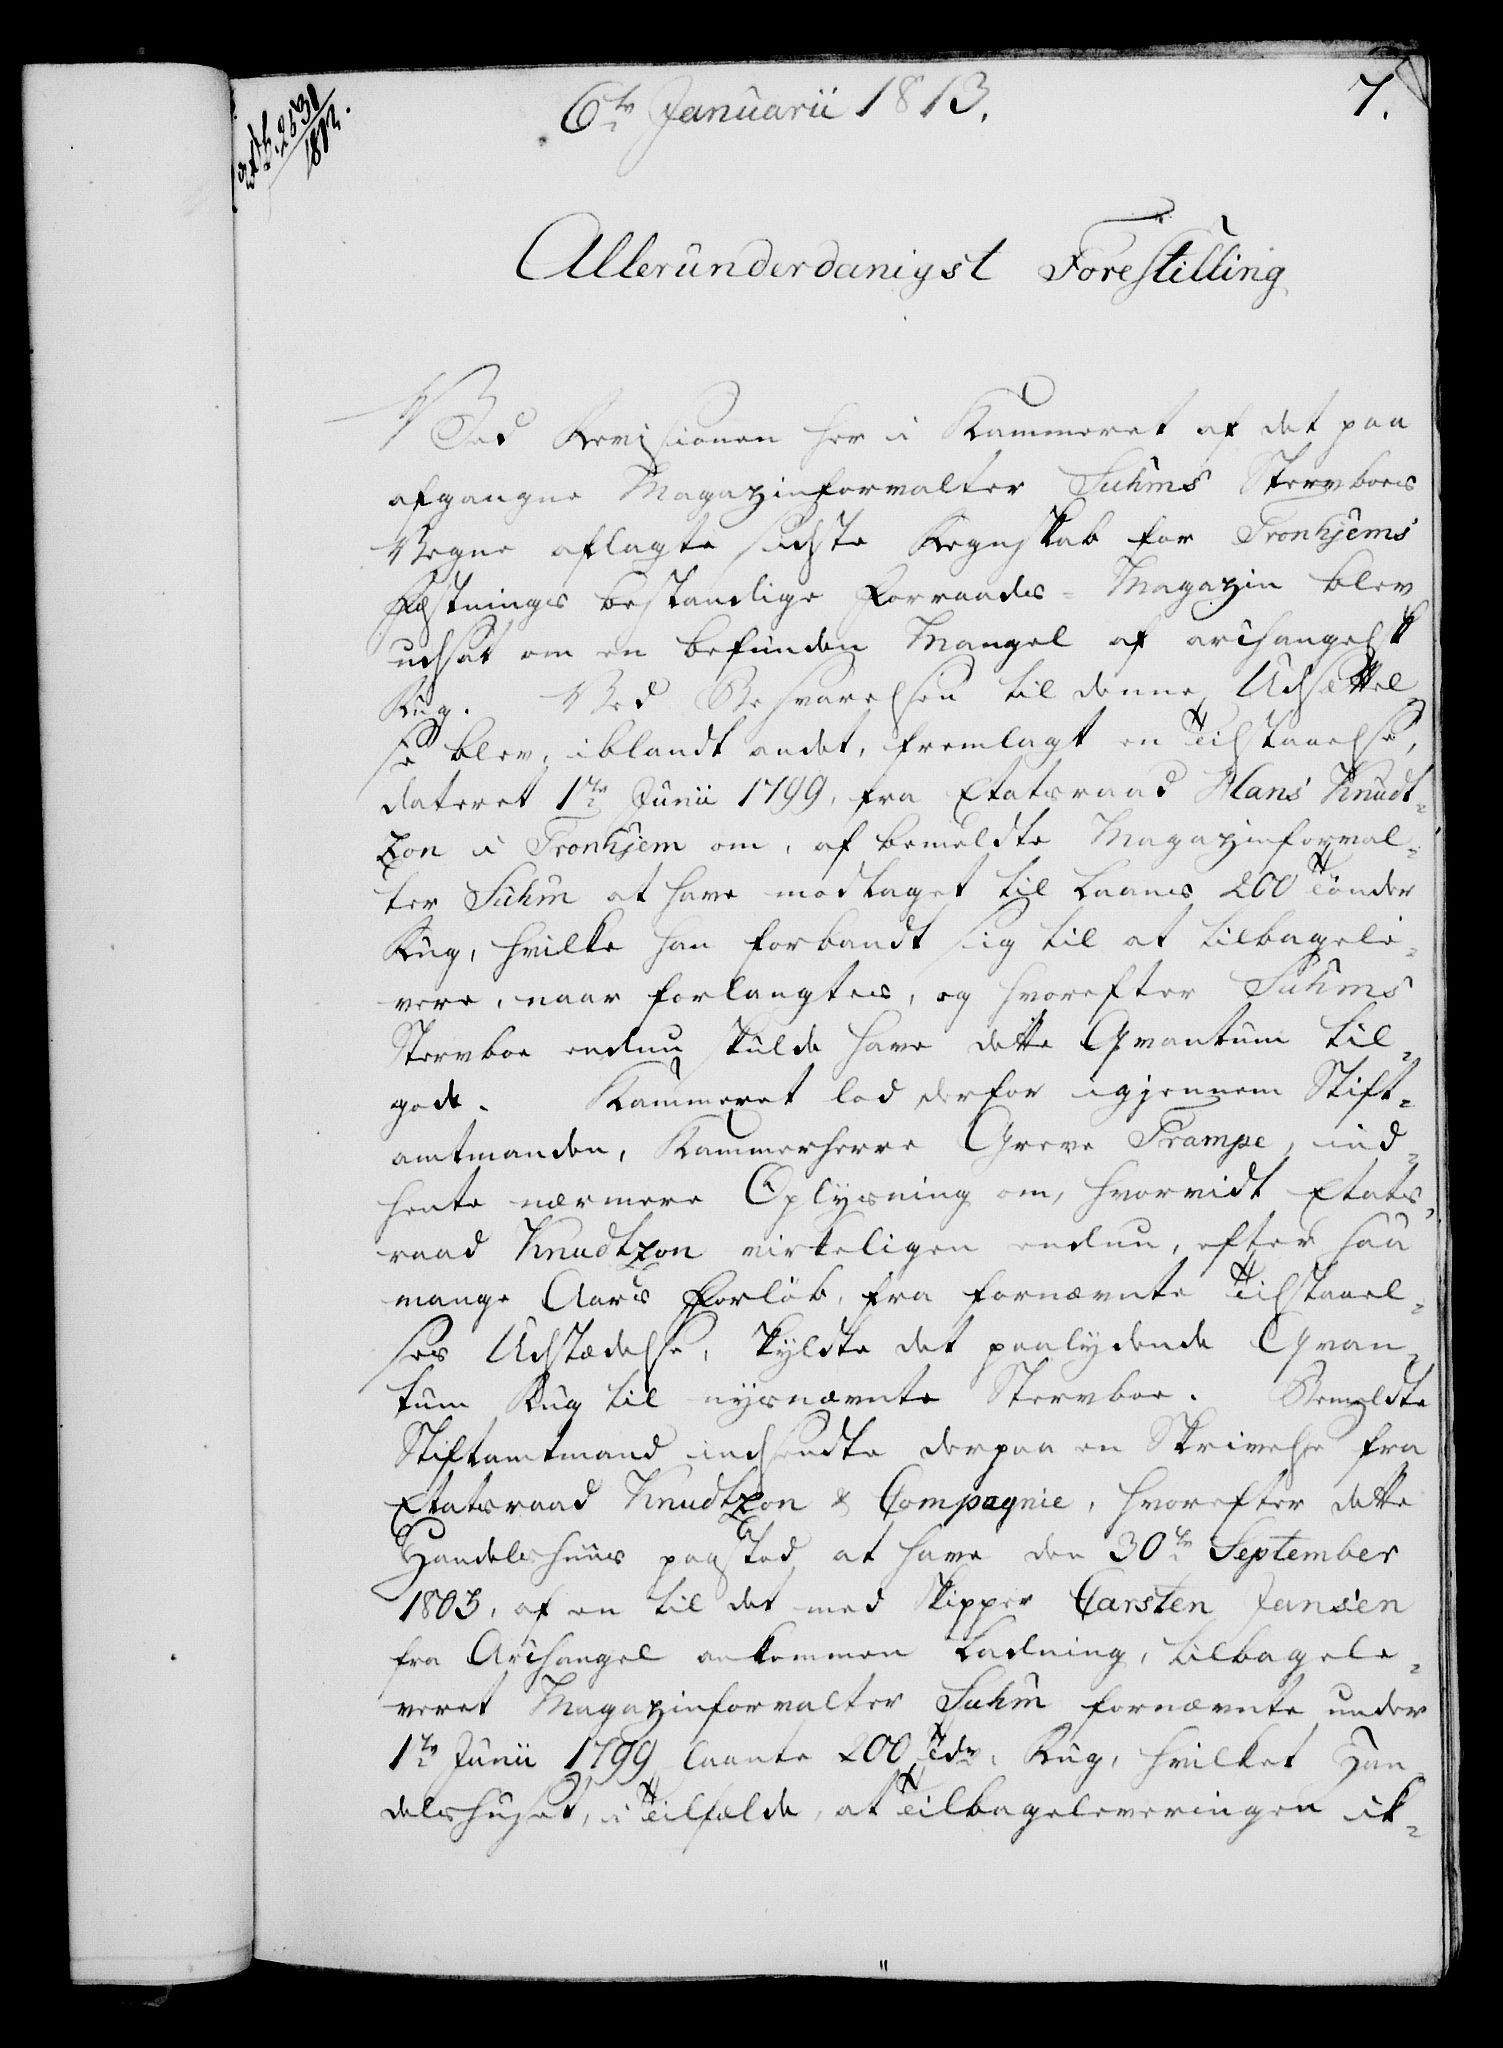 6te Januarii 1813.
7.
2530
1812.
Allerunderdanigst Forestilling
Ved Revisionen her i Kammeret af det paa
afgangne Magazinforvalter Suhms Sterboes
Vegne aflagte sidste Regnskab for Tronhjems
Fæstnings bestandige Forraads-Magazin blev
udsat om en befunden Mangel af archangelsk
Rug. Ved Besvarelsen til denne Udsættel-
se blev, iblandt andet, fremlagt en Tilstaaelse,
dateret 1te Junii 1799, fra Etatsraad Hans Knudt-
zon i Tronhjem om, af bemeldte Magazinforval-
ter Suhm at have modtaget til Laans 200 Tönder
Rug, hvilke han forbandt sig til at tilbagele-
vere, naar forlangtes, og hvorefter Suhms
Sterboe endnu skulde have dette Qvantum til-
gode. Kammeret lod derfor igjennem Stift-
amtmanden, Kammerherre Greve Trampe, ind-
hente nærmere Oplysning om, hvorvidt Etats-
raad Knudtzon virkeligen endnu, efter saa
mange Aars Forlöb, fra fornævnte Tilstaael-
ses Udstædelse, skyldte det paalydende Qvan-
tum Rug til nysnævnte Sterboe. Bemeldte
Stiftamtmand indsendte derpaa en Skrivelse fra
Etatsraad Knudtzon & Compagnie, hvorefter dette
Handelshuus paastod at have den 30te September
1803, af en til det med Skipper Carsten Jansen
fra Archangel ankommen Ladning, tilbagele-
veret Magazinforvalter Suhm fornævnte under
1te Junii 1799 laante 200 Tdr. Rug, hvilket Han-
delshuset, i Tilfælde, at Tilbageleveringen ik-